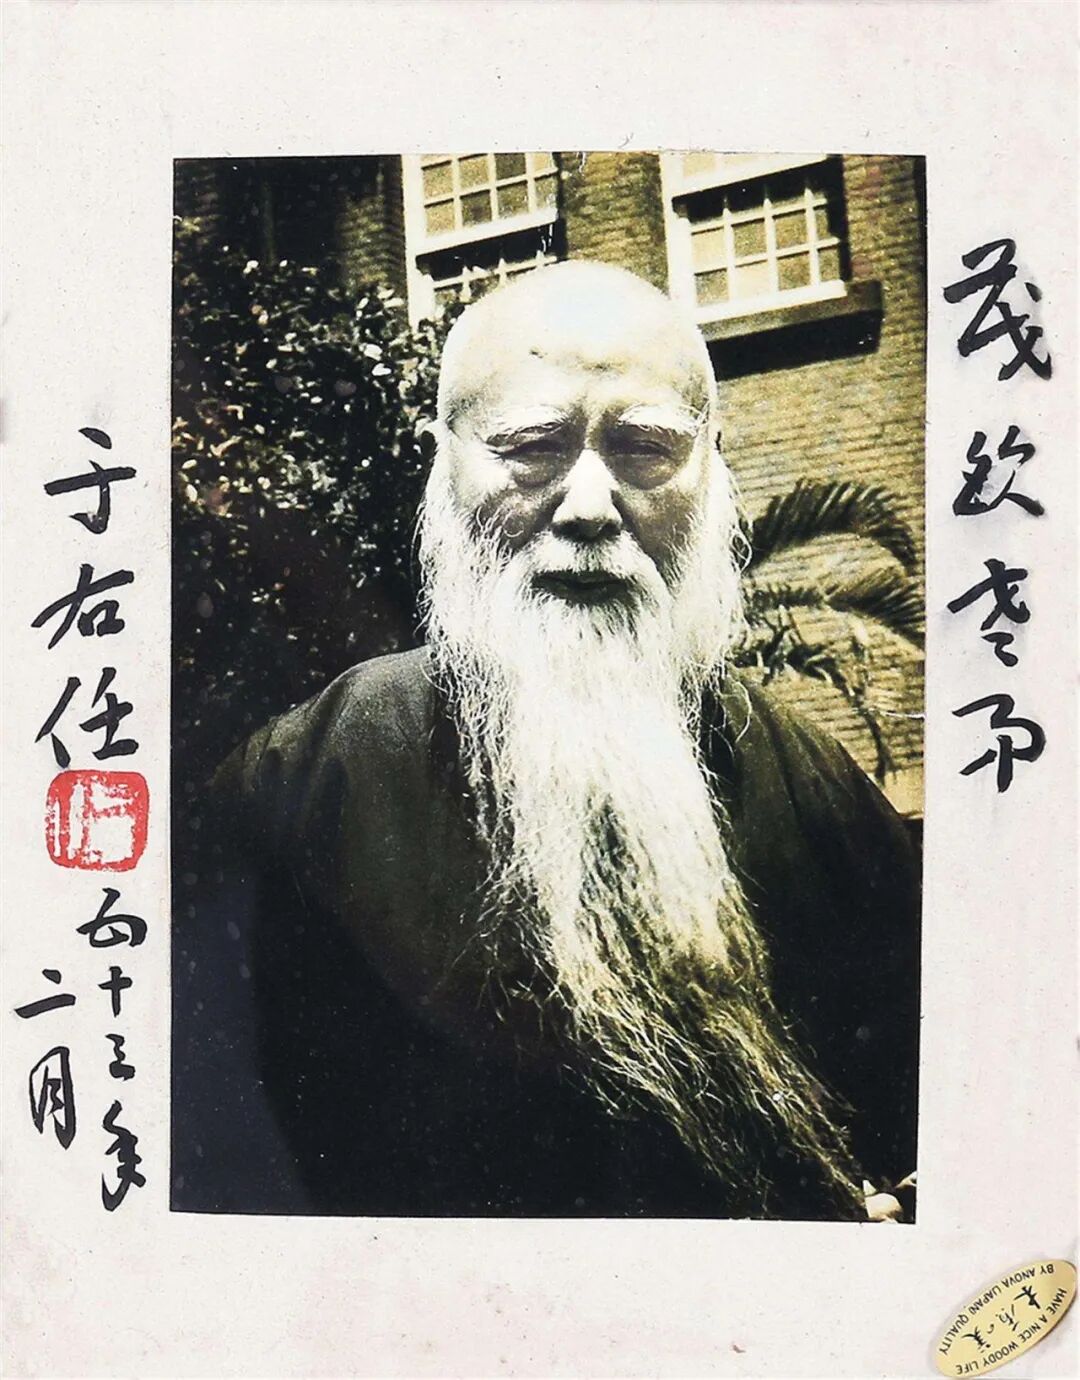 茂欽老弟
于右任
四十三年
二月
HAVE A NICE WOODY LIFE
BY ANOVA (JAPAN) QUALITY